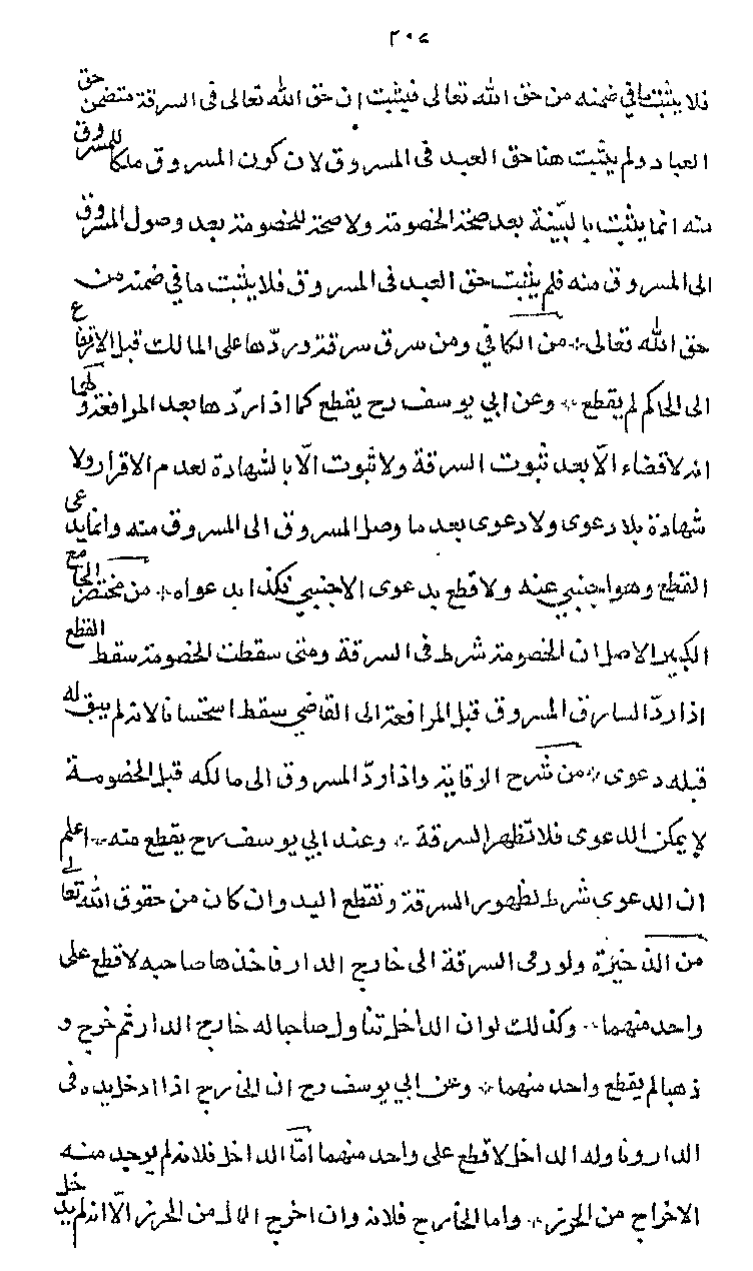 ٢٠٧
فلا يثبت ما في ضمنه من حق الله تعالى فيثبت ان حق الله تعالى فى السرقة متضمن حق
العباد ولم يثبت هنا حق العبد فى المسروق لان كون المسروق ملكا للمسروق
منه انما يثبت بالبيّنة بعد صحة الخصومة ولا صحة للخصومة بعد وصول المسروق
الى المسروق منه فلم يثبت حق العبد فى المسروق فلا يثبت ما في ضمنه من
حق الله تعالى من الكافي ومن سرق سرقة وردّها على المالك قبل الارتفاع
الى الحاكم لم يقطع وعن ابي يوسف رح يقطع كما اذا ردّها بعد المرافعة ولهما
انه لا قضاء الّا بعد ثبوت السرقة ولا ثبوت الّا بالشهادة لعدم الاقرار ولا
شهادة بلا دعوى ولا دعوى بعد ما وصل المسروق الى المسروق منه وانما يدعى
القطع وهو اجنبي عنه ولا قطع بدعوى الاجنبي فكذا بدعواه من مختصر الجامع
الكبير الاصل ان الخصومة شرط فى السرقة ومتى سقطت الخصومة سقط القطع
اذا ردّ السارق المسروق قبل المرافعة الى القاضي سقط استحسانا لانه لم يبق له
قبله دعوى من شرح الوقاية واذا ردّ المسروق الى مالكه قبل الخصومة
لا يمكن الدعوى فلا تظهر السرقة وعند ابي يوسف رح يقطع منه اعلم
ان الدعوى شرط لظهور السرقة وتقطع اليد وان كان من حقوق الله تعالى
من الذخيرة ولو رمى السرقة الى خارج الدار فاخذها صاحبه لا قطع على
واحد منهما وكذلك لو ان الداخل تناول صاحبا له خارج الدار ثم خرج و
ذهبا لم يقطع واحد منهما وعن ابي يوسف رح ان الخارج اذا ادخل يده فى
الدار وناوله الداخل لا قطع على واحد منهما امّا الداخل فلانه لم يوجد منه
الاخراج من الحرز واما الخارج فلانه وان اخرج المال من الحرز الّا انه لم يدخل